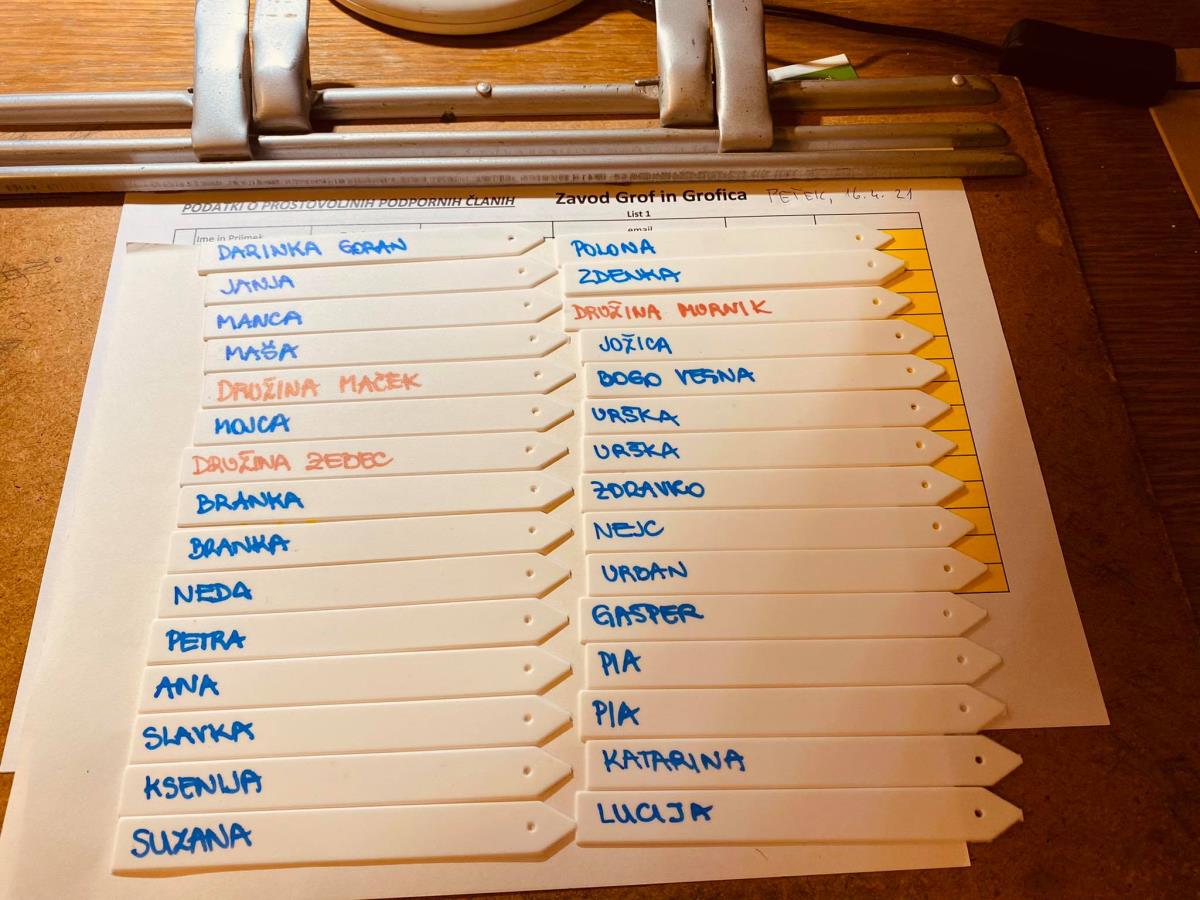 PODATKI O PROSTOVOLJNIH PODPORNIH ČLANIH
Zavod Grof in Grofica
PETEK, 16.4.21
List 1
Ime in Priimek
email
DARINKA GORAN
JANJA
MANCA
MAŠA
DRUŽINA MAČEK
MOJCA
DRUŽINA ZEBEC
BRANKA
BRANKA
NEDA
PETRA
ANA
SLAVKA
KSENIJA
SUZANA
POLONA
ZDENKA
DRUŽINA MURNIK
JOŽICA
BOGO VESNA
URŠKA
URŠKA
ZDRAVKO
NEJC
URBAN
GAŠPER
PIA
PIA
KATARINA
LUCIJA